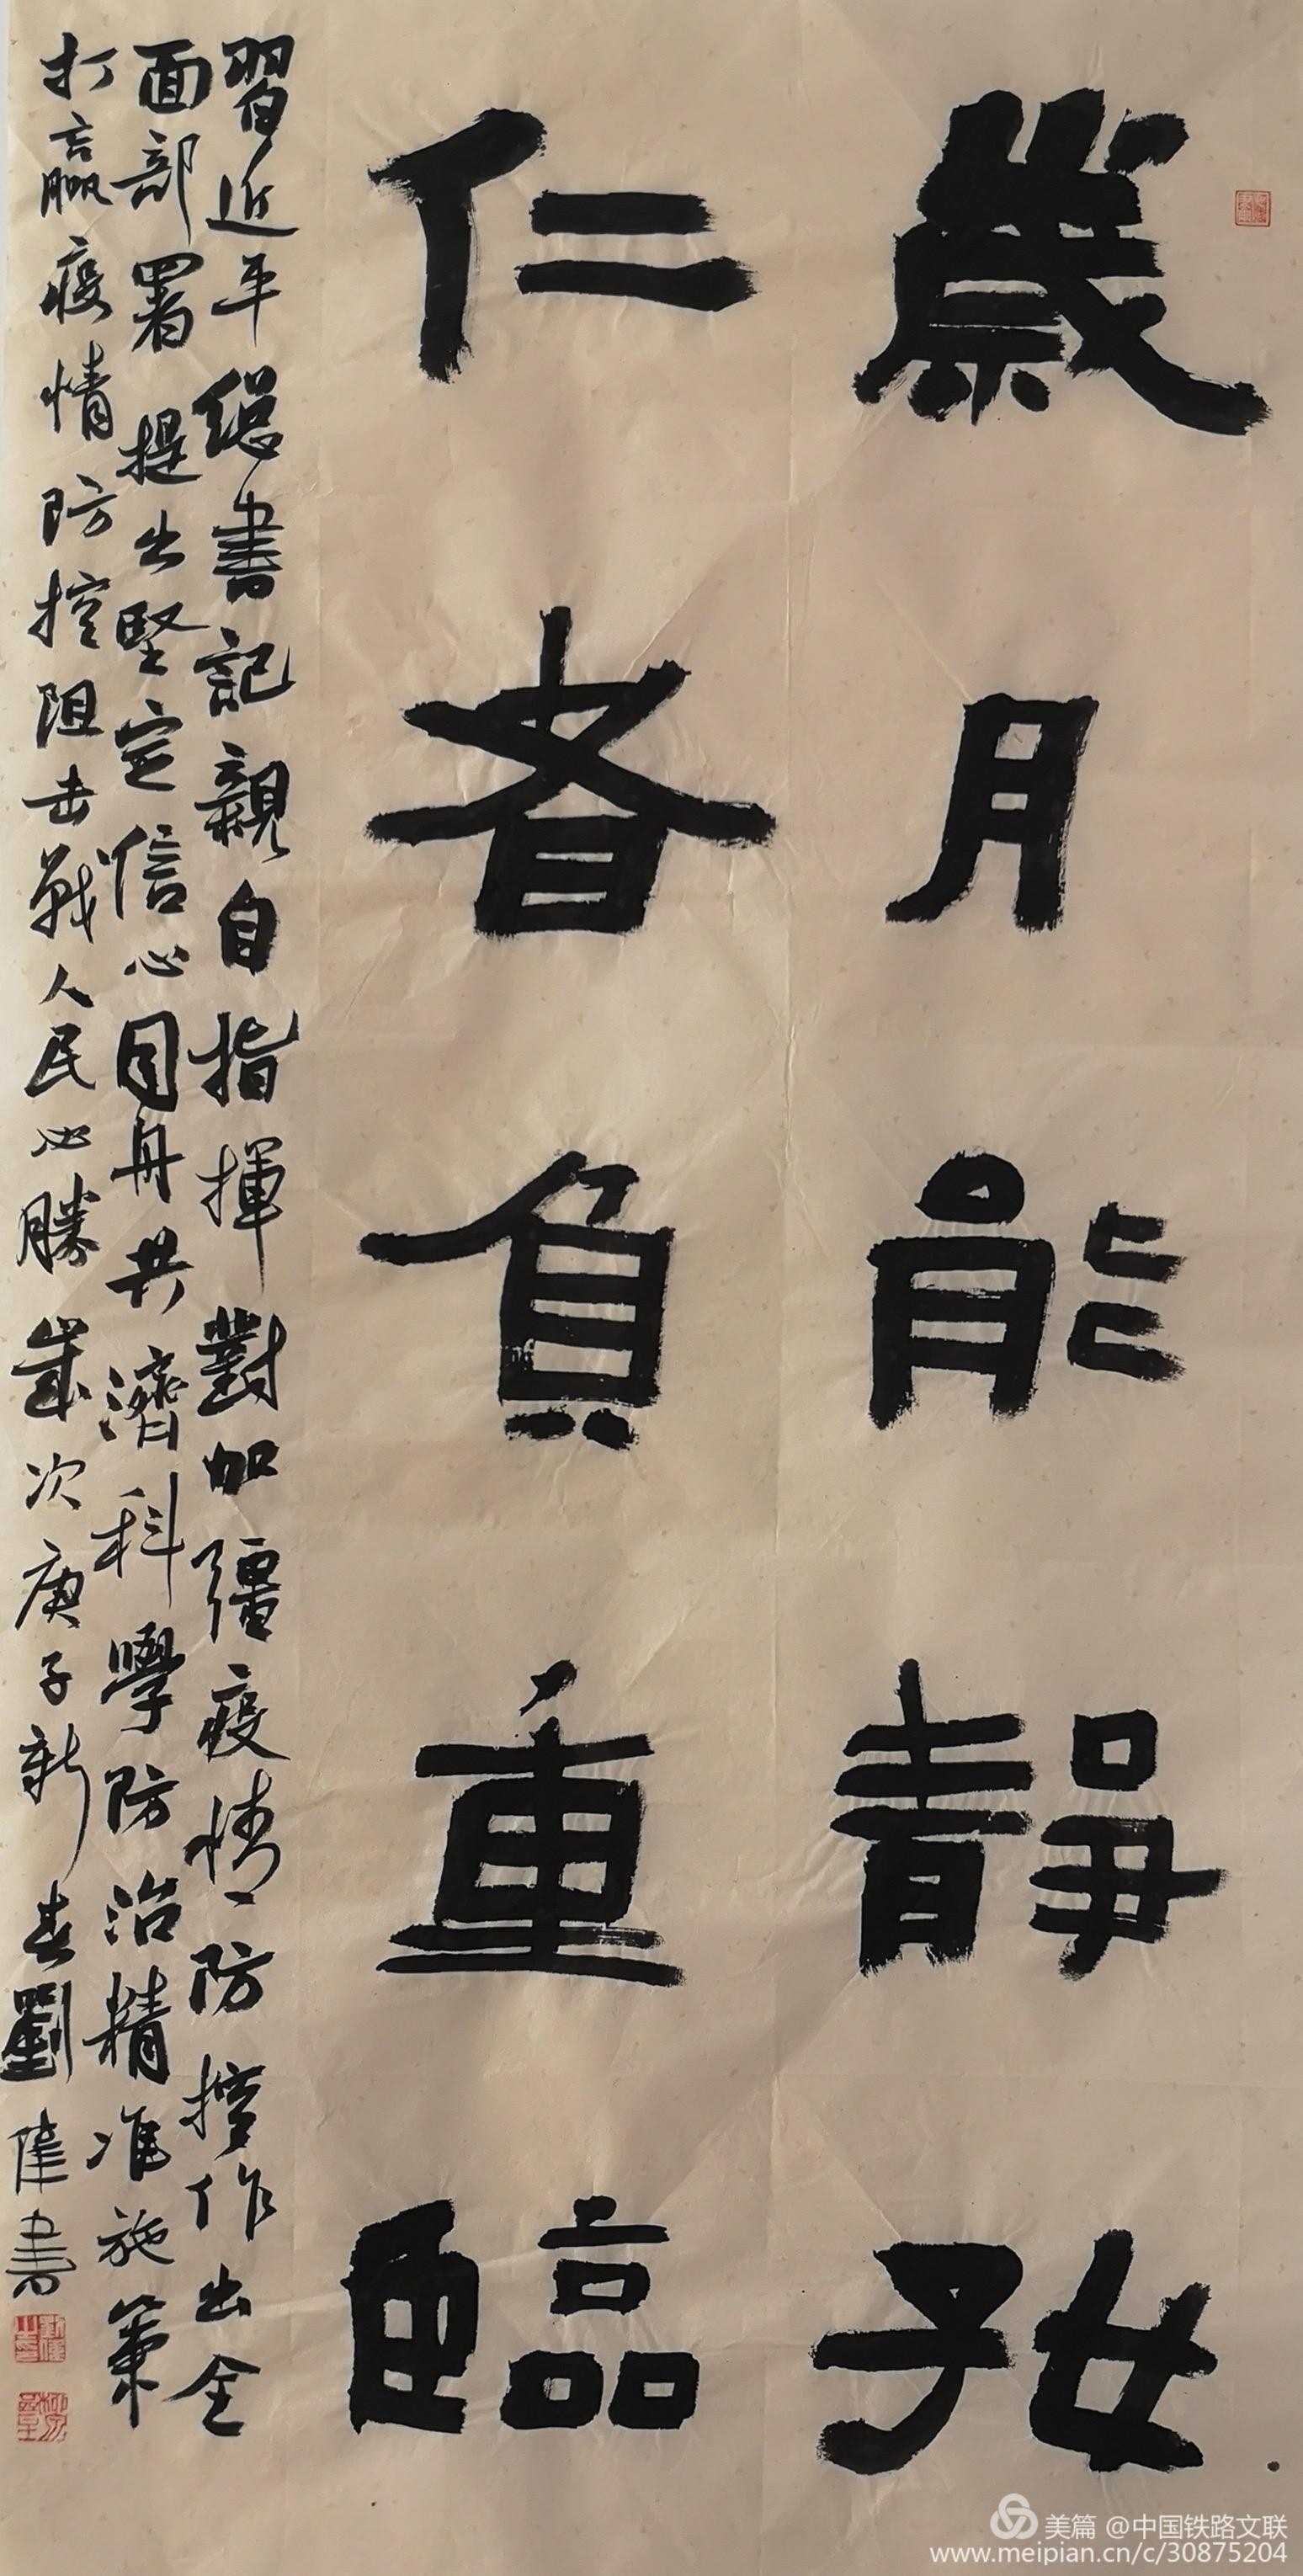 歲月能靜好
仁者負重臨
習近平總書記親自指揮對加強疫情防控作出全
面部署提出堅定信心同舟共濟科學防治精准施策
打贏疫情防控阻击戰人民必勝歲次庚子新春劉偉書
美篇 @中国铁路文联
www.meipian.cn/c/30875204